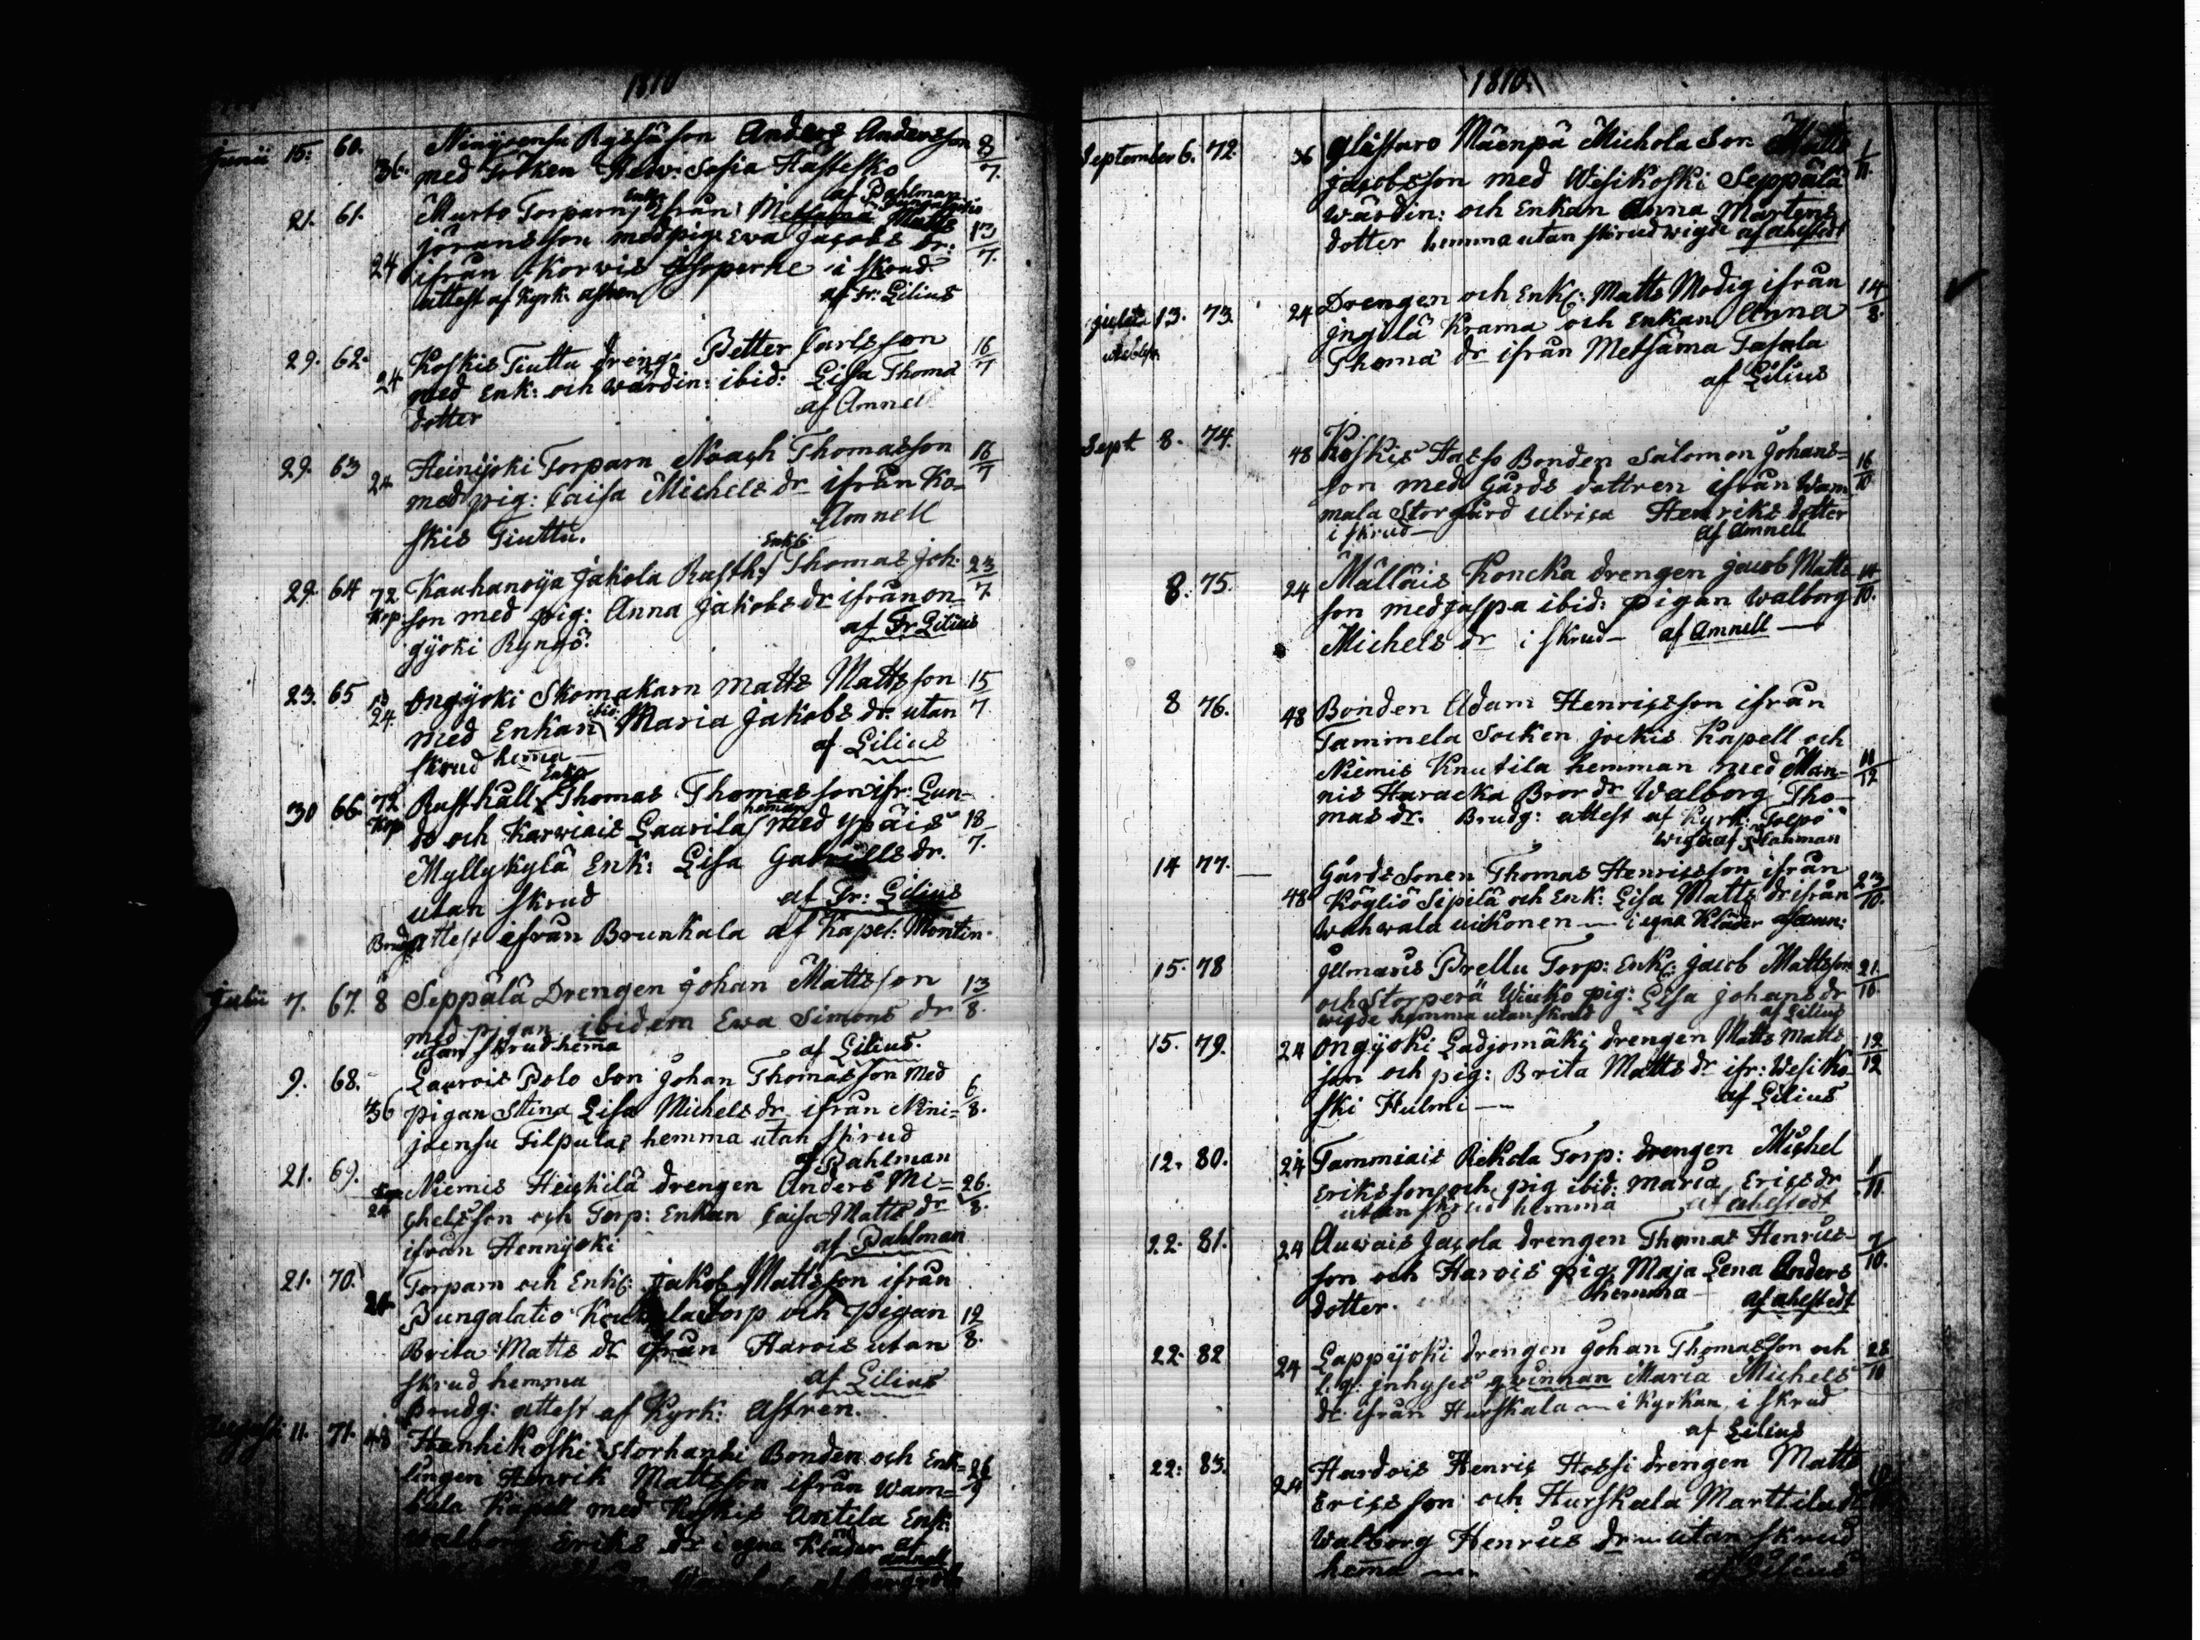 1810
Junii 15. 60. Ninijoensu Rysså son Anders Andersson 8/7.
36. med Fröken Hedv: Sofia Hästesko
af Dahlman
21. 61. Murto Torparn Enkl: ifrån Metsämä Matts 13/7.
Jöransson med pig: Ewa Jacobs dr:
24 ifrån Korvis i skrud
attest af Kyrk: Astren af Fr: Lilius
29. 62. Koskis Tiuttu dreng: Petter Carlsson 16/7
24 med Enk: och wärdin: ibid: Lisa Thomä
dotter af Amnel
29. 63 Heinijoki Torparn Noach Thomasson 16/7
24 med pig: Caisa Michels dr ifrån Ko-
skis Tiuttu. Amnell
29. 64 72 Kauhanoija Jakola Rusth: Enkl: Thomas Joh: 23/7
Krp son med pig: Anna Jakobs dr ifrån on-
gijoki Rynys. af Fr Lilius
23. 65 24 ongijoki Skomakarn Matts Mattsson 15/7.
med Enkan ibid: Maria Jakobs dr. utan
skrud hema af Lilius
30 66. 72 Rusthåll: Enkl: Thomas Thomasson ifr: Lun-
Krp do och Karwiais Laurila heman med ypäis 18/7.
Myllykylä Enk: Lisa Gabriells dr.
utan skrud af Fr: Lilius
Brudg attest ifrån Brunkala af Kapel: Montin.
Julii 7. 67. 8 Seppälä Drengen Johan Mattsson 13/8.
med pigan ibidem Ewa Simons dr
utan skrud hema af Lilius.
9. 68. Laurois Polo Son Johan Thomasson med 6/8.
36 pigan Stina Lisa Michels dr ifrån Nini-
joensu Tilpula, hemma utan skrud
af Dahlman
21. 69. Niemis Heickilä drengen Anders Mi- 26/8.
24 chelsson och Torp: Enkan Caisa Matts dr
ifrån Hennijoki af Dahlman
21. 70. Torparn och Enkl: Jakob Mattsson ifrån
24 Pungalatio Torp och pigan 12/8.
Brita Matts dr ifrån Harois utan
skrud hemma af Lilius
Brudg: attest af Kyrk: Astren.
Augusti 11. 71. 48 Hanhikoski Storhanhi Bonden och Enk-
lingen Henrik Mattsson ifrån Wam- 26/9
bula Kapell med Koskis Antila Enk:
Walborg Eriks dr i egna Kläder af
amnell
1810.
September 6. 72. 36 glåssaro Mäenpä Michola Son Matts 1/11.
Jacobsson med Wesikoski Seppälä
wärdin: och Enkan Anna Mårtens
dotter hemma utan skrud wigde af ahlstedt
Julii 13. 73. 24 Drengen och Enkl: Matts Modig ifrån 14/8.
Jngilä Krama och Enkan Anna
Thomä dr ifrån Metsämä Tasala
af Lilius
Sept 8. 74. 48 Koskis Hasso Bonden Salomon Johans=
son med Gårds dottren ifrån Wam- 16/10
mala Storgård Ulrica Henriks dotter
i skrud — af Amnell
8. 75. 24 Mälläis Koncka drengen Jacob Matts 14/10.
son med Jaspa ibid: pigan Walborg
Michels dr i skrud — af Amnell —
8 76. 48 Bonden Adam Henricsson ifrån
Tammela Socken Jockis Kapell och
Niemis Knutila hemman med Man- 11/12
nis Haracka Bror dr Walborg Tho-
mas dr. Brudg: attest af Kyrk: Tolpo
wigd af Dahlman
14 77. Gårds Sonen Thomas Henricsson ifrån
48 Köyliö Sipilä och Enk: Lisa Matts dr ifrån 23/10.
wahwala uikonen — i egna Kläder af amn:
15. 78 Yllmaris Prellu Torp: Enkl: Jacob Mattsson 21/10.
och Storperä Wiuko pig: Lisa Johans dr
wigde hemma utan skrud af Lilius
15. 79. 24 ongijoki Ladjomäki drengen Matts Matts
son och pig: Brita Matts dr ifr: Wesiko- 12/12
ski Hulmi — af Lilius
12. 80. 24 Tammiais Rekola Torp: drengen Michel
Eriksson och pig ibid: Maria Erics dr 1/11.
utan skrud hemma af ahlstedt
22. 81. 24 Auwais Jacola drengen Thomas Henrics- 7/10.
son och Harois pig: Maja Lena Anders
dotter. hemma — af ahlstedt
22. 82 24 Lappijoki drengen Johan Thomasson och 28/10
Jnhyses qvinnan Maria Michels
dr. ifrån Hurskala — i Kyrkan i skrud
af Lilius
22. 83. 24 Hardois Henric Hossi drengen Matts
Ericsson och Hurskala Marttila dr
Walborg Henrics dr — utan skrud
hema — af Lilius